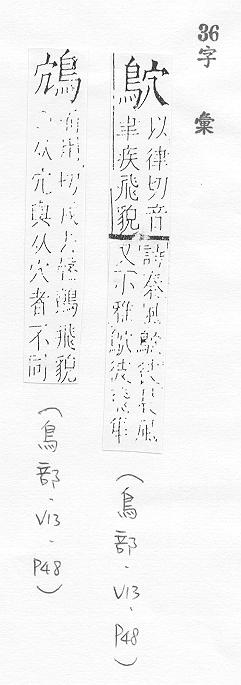 36
字彙
鴥
以律切音詩秦風鴥彼晨風
聿疾飛貌又小雅鴥彼飛隼
(鳥部、V13、P48)
切 飛貌
从 與从穴者不同
(鳥部、V13、P48)